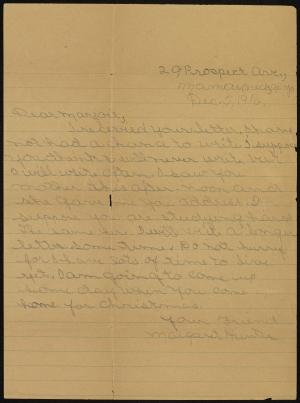 29 Prospect Ave.,
Mamaroneck, N.Y.
Dec. 5, 1916.
Dear Marjorie,
I recieved your letter. I have
not had a chance to write. I supose
you think I will never write but
I will write often. I saw you
mother this after noon and
she gave me you address. I
supose you are studying hard
the same here. I will write a longer
letter some time. Do not hurry
for I have lots of time to live
yet. I am going to come up
some day when you come
home for Christmas.
Your Friend
Margaret